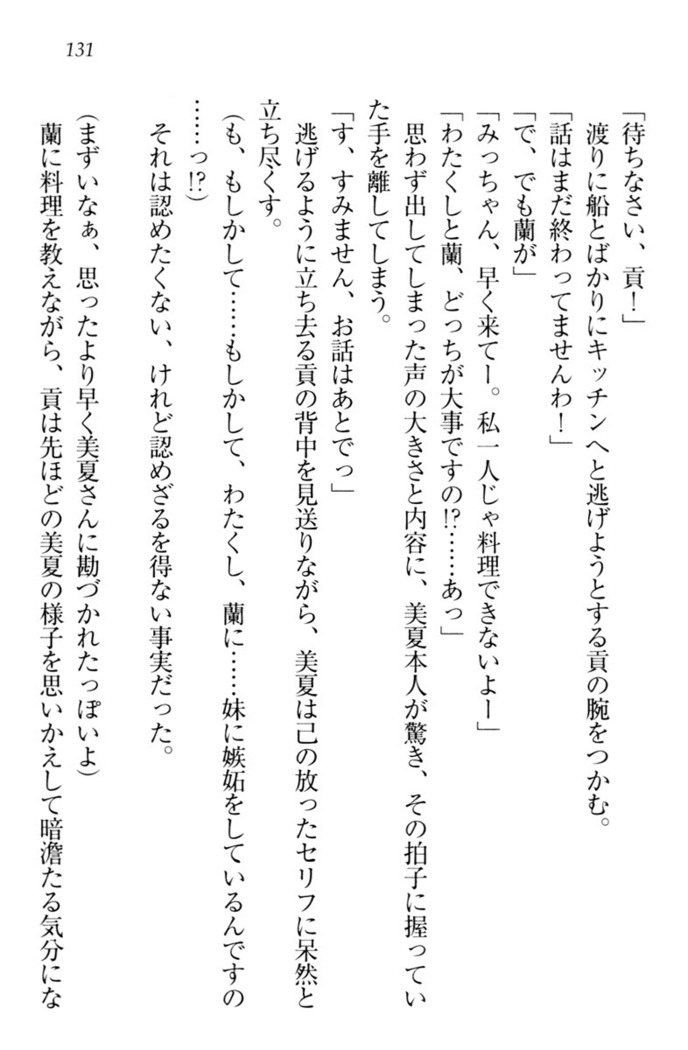 131
「待ちなさい、貢！」
渡りに船とばかりにキッチンへと逃げようとする貢の腕をつかむ。
「話はまだ終わってませんわ！」
「で、でも蘭が」
「みっちゃん、早く来てー。私一人じゃ料理できないよー」
「わたくしと蘭、どっちが大事ですの!?……あっ」
思わず出してしまった声の大きさと内容に、美夏本人が驚き、その拍子に握ってい
た手を離してしまう。
「す、すみません、お話はあとでっ」
逃げるように立ち去る貢の背中を見送りながら、美夏は己の放ったセリフに呆然と
立ち尽くす。
（も、もしかして……もしかして、わたくし、蘭に……妹に嫉妬をしているんですの
……っ!?）
それは認めたくない、けれど認めざるを得ない事実だった。
（まずいなぁ、思ったより早く美夏さんに勘づかれたっぽいよ）
蘭に料理を教えながら、貢は先ほどの美夏の様子を思いかえして暗澹たる気分にな